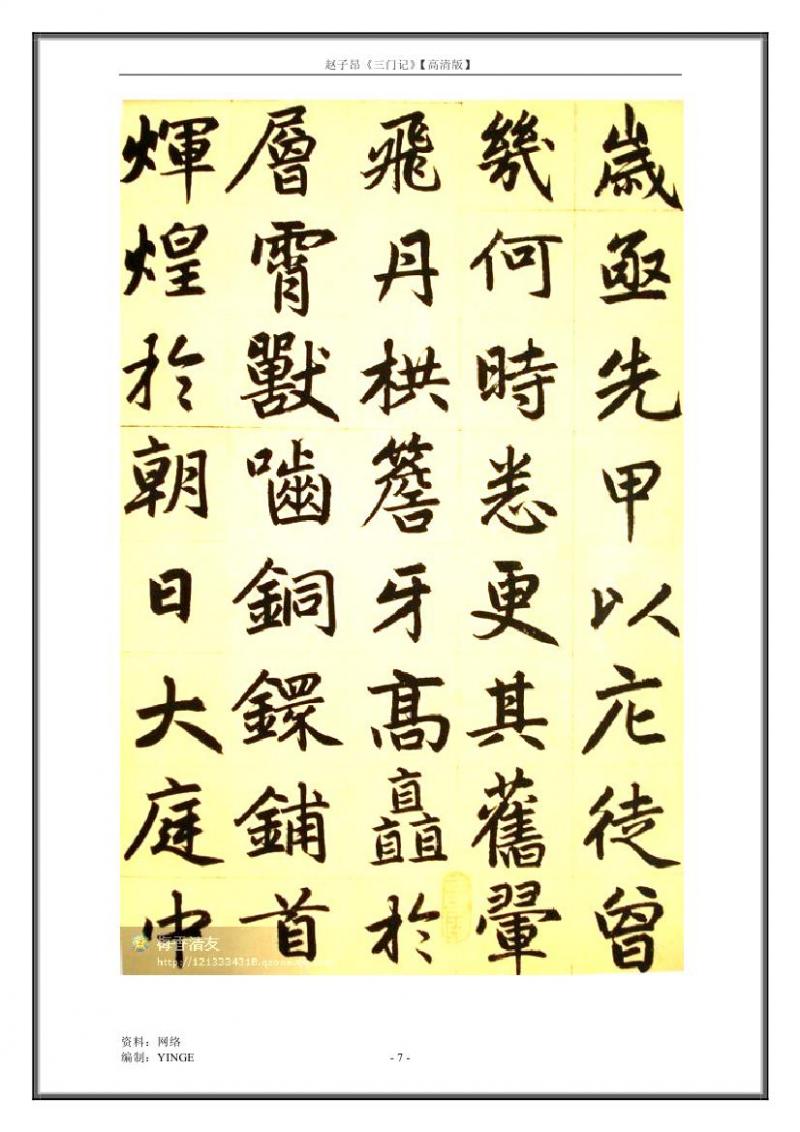 赵子昂《三门记》【高清版】
歲亟先甲以庀徒曾
幾何時悉更其舊翬
飛丹栱簷牙高矗於
層霄獸嚙銅鐶鋪首
輝煌於朝日大庭中
梅香清友
资料：网络
编制：YINGE
- 7 -